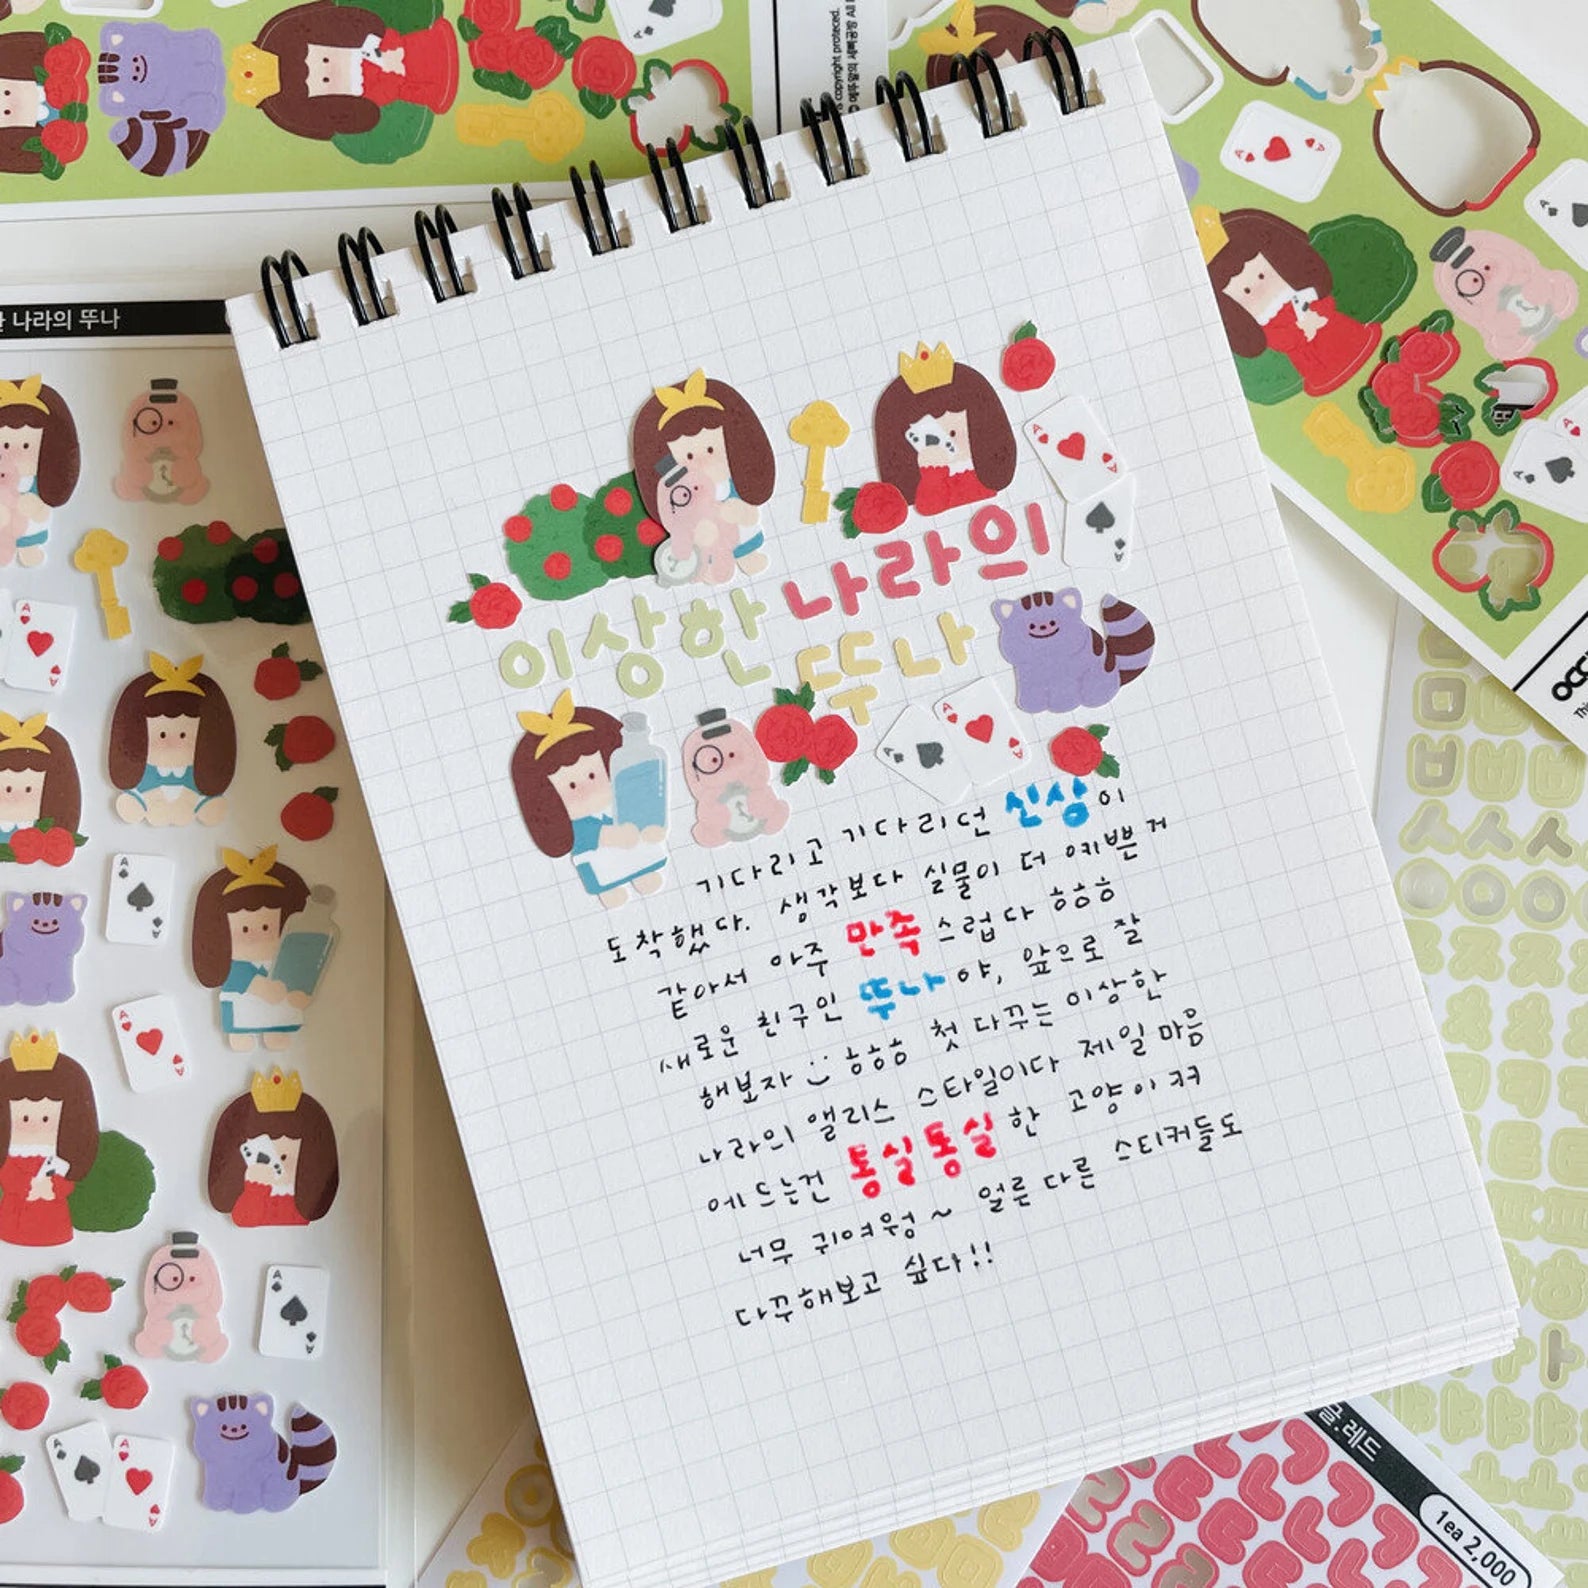 나라의 뚜나
copyright protected.
이상한 나라의
뚜나
기다리고 기다리던 신상이
도착했다. 생각보다 실물이 더 예쁜거
같아서 아주 만족스럽다 ㅎㅎㅎ
새로운 친구인 뚜나야, 앞으로 잘
해보자 :) ㅎㅎㅎ 첫 다꾸는 이상한
나라의 앨리스 스타일이다 제일 마음
에 드는건 통실통실한 고양이 ㅋㅋ
너무 귀여웡~ 얼른 다른 스티커들도
다꾸해보고 싶다!!
글.레드
1ea 2,000